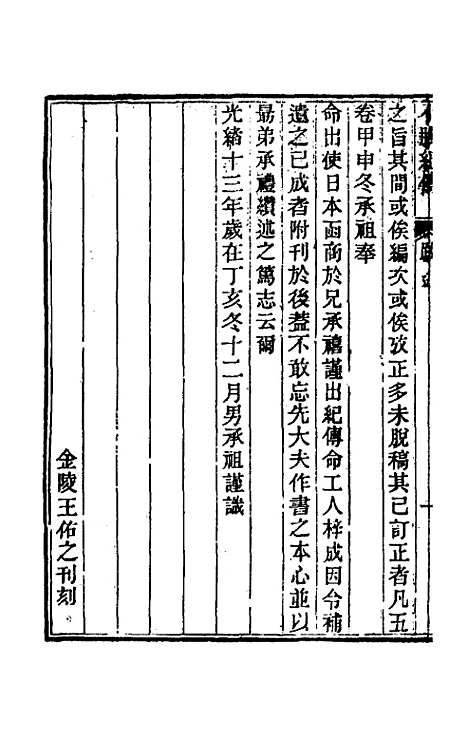 之旨其間或俟編次或俟攷正多未脫稿其已訂正者凡五
卷甲申冬承祖奉
命出使日本函商於兄承禧謹出紀傳命工人梓成因令補
遺之已成者附刊於後葢不敢忘先大夫作書之本心並以
勗弟承禮纘述之篤志云爾
光緒十三年歲在丁亥冬十二月男承祖謹識
金陵王佑之刊刻